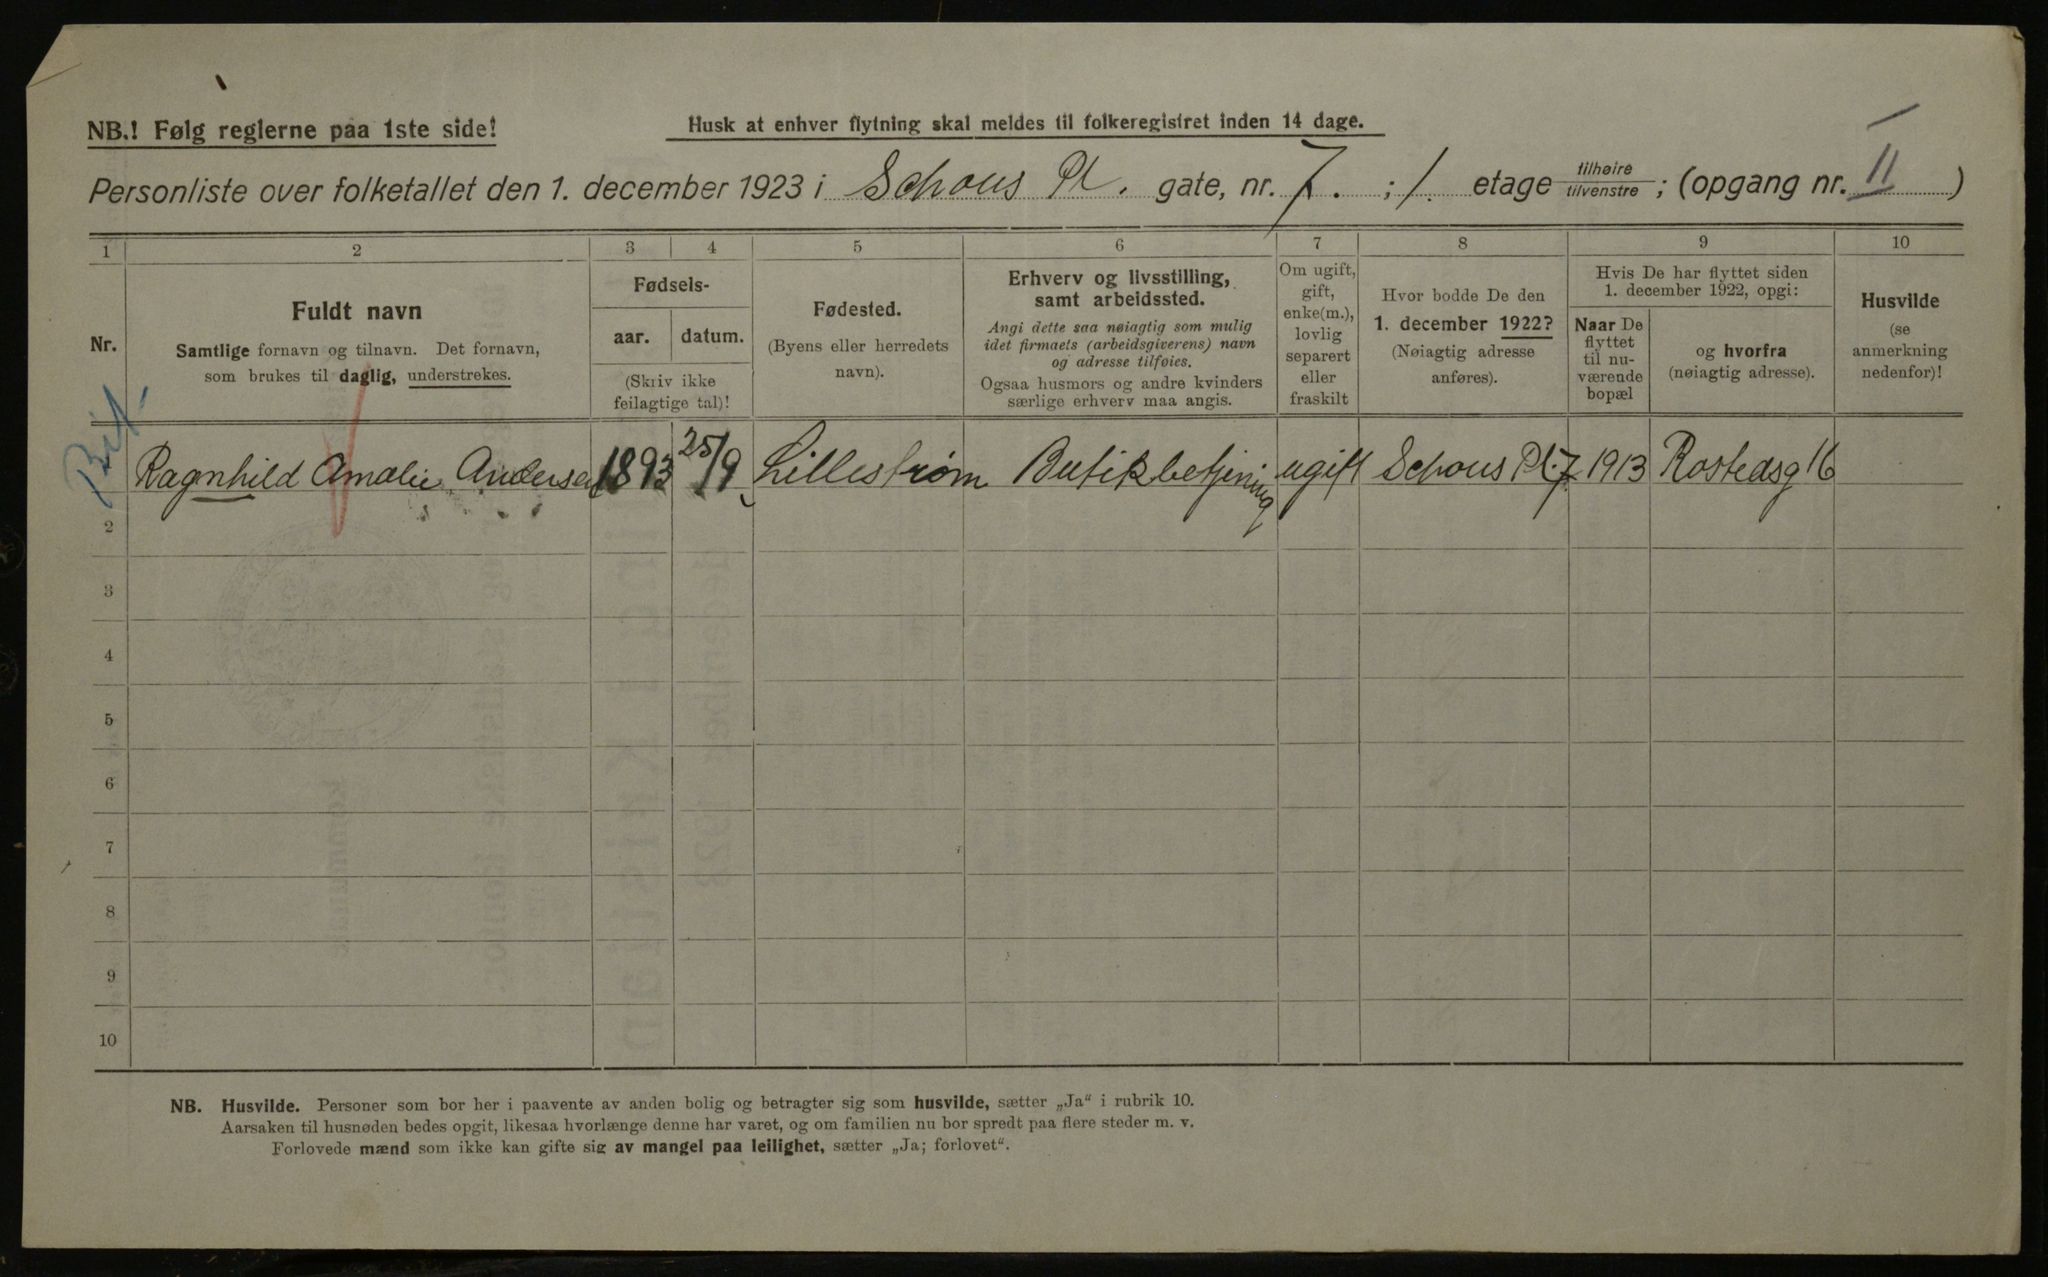 NB.! Følg reglerne paa 1ste side!
Husk at enhver flytning skal meldes til folkeregistret inden 14 dage.
Personliste over folketallet den 1. december 1923 i Schous Pl. gate, nr. 7. ; 1. etage tilhøire tilvenstre ; (opgang nr. II )
1 2 3 4 5 6 7 8 9 10
Nr.
Fuldt navn
Samtlige fornavn og tilnavn. Det fornavn,
som brukes til daglig, understrekes.
Fødsels-
aar. datum.
(Skriv ikke
feilagtige tal)!
Fødested.
(Byens eller herredets
navn).
Erhverv og livsstilling,
samt arbeidssted.
Angi dette saa nøiagtig som mulig
idet firmaets (arbeidsgiverens) navn
og adresse tilføies.
Ogsaa husmors og andre kvinders
særlige erhverv maa angis.
Om ugift,
gift,
enke(m.),
lovlig
separert
eller
fraskilt
Hvor bodde De den
1. december 1922?
(Nøiagtig adresse
anføres).
Hvis De har flyttet siden
1. december 1922, opgi:
Naar De
flyttet
til nu-
værende
bopæl
og hvorfra
(nøiagtig adresse).
Husvilde
(se
anmerkning
nedenfor)!
Ragnhild Amalie Andersen 1893 25/9 Lillestrøm Butikbetjening ugift Schous Pl. 7 1913 Rostedsg 16
2
3
4
5
6
7
8
9
10
NB. Husvilde. Personer som bor her i paavente av anden bolig og betragter sig som husvilde, sætter „Ja“ i rubrik 10.
Aarsaken til husnøden bedes opgit, likesaa hvorlænge denne har varet, og om familien nu bor spredt paa flere steder m. v.
Forlovede mænd som ikke kan gifte sig av mangel paa leilighet, sætter „Ja; forlovet“.